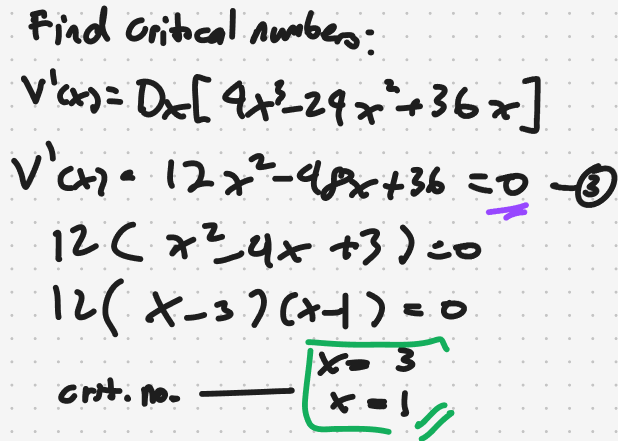 Find critical numbers:
V'(x) = Dx[4x³-24x²+36x]
V'(x) = 12x²-48x+36 = 0 -③
12(x²-4x+3) = 0
12(x-3)(x-1) = 0
x = 3
crit. no. — x = 1